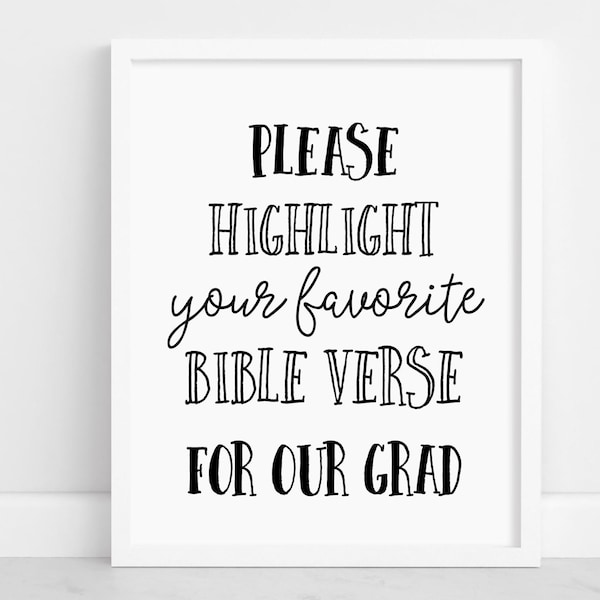 PLEASE
HIGHLIGHT
your favorite
BIBLE VERSE
FOR OUR GRAD